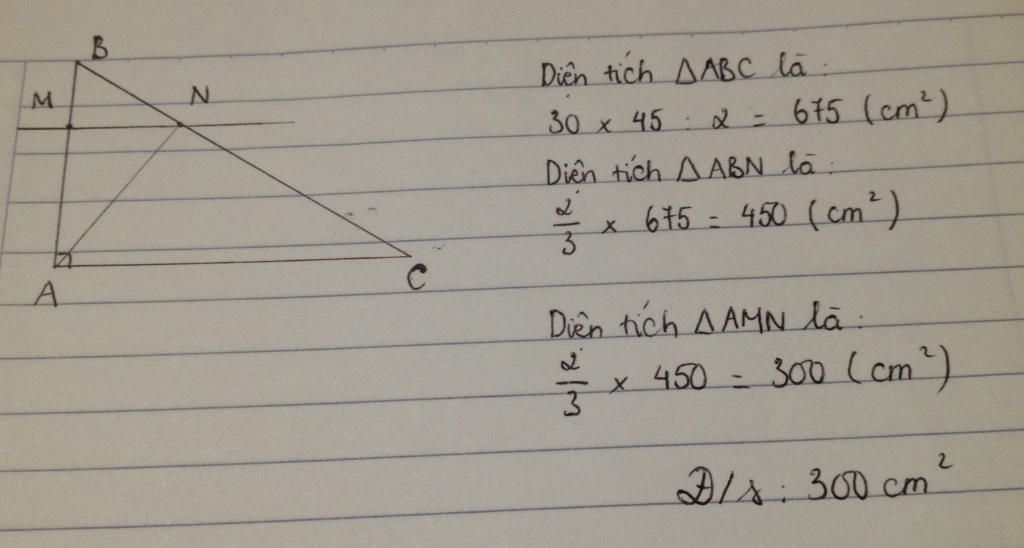 B
M
N
A
C
Diện tích ΔABC là :
30 × 45 : 2 = 675 (cm²)
Diện tích ΔABN là :
2/3 × 675 = 450 (cm²)
Diện tích ΔAMN là :
2/3 × 450 = 300 (cm²)
Đ/s : 300 cm²